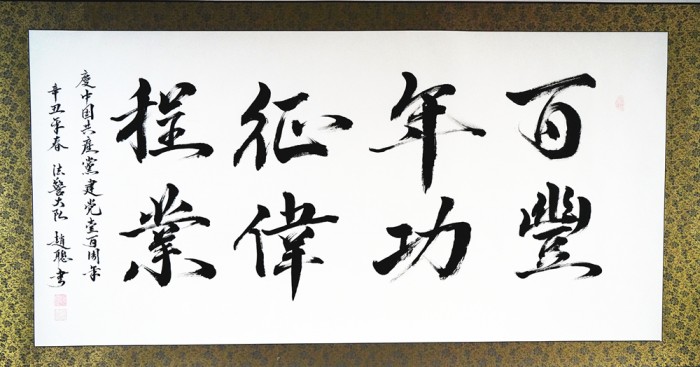 百年征程
豐功偉業
慶中国共產黨建党壹百周年
辛丑年春 法警大队 趙聰书